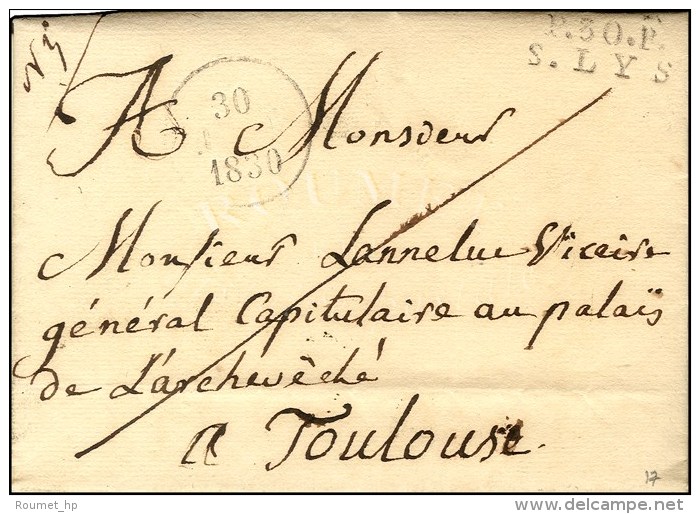 P.30.P.
S. LYS
30
1830
A Monsieur
Monsieur Lanneluc Vicaire
général Capitulaire au palaïs
de L'archevêché
a Toulouse.
17
Roumet_hp
delcampe.net